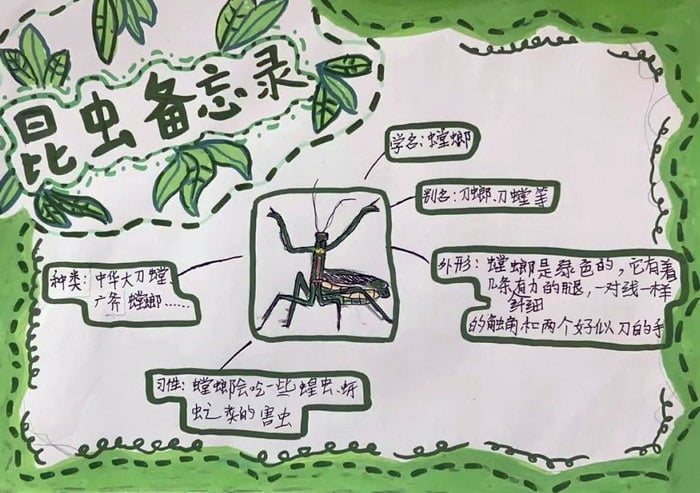 昆虫备忘录
学名：螳螂
别名：刀螂、刀螳等
种类：中华大刀螳
广斧 螳螂……
外形：螳螂是绿色的，它有着
几条有力的腿，一对线一样
纤细
的触角和两个好似刀的手
习性：螳螂会吃一些蝗虫、蚜
虫之类的害虫